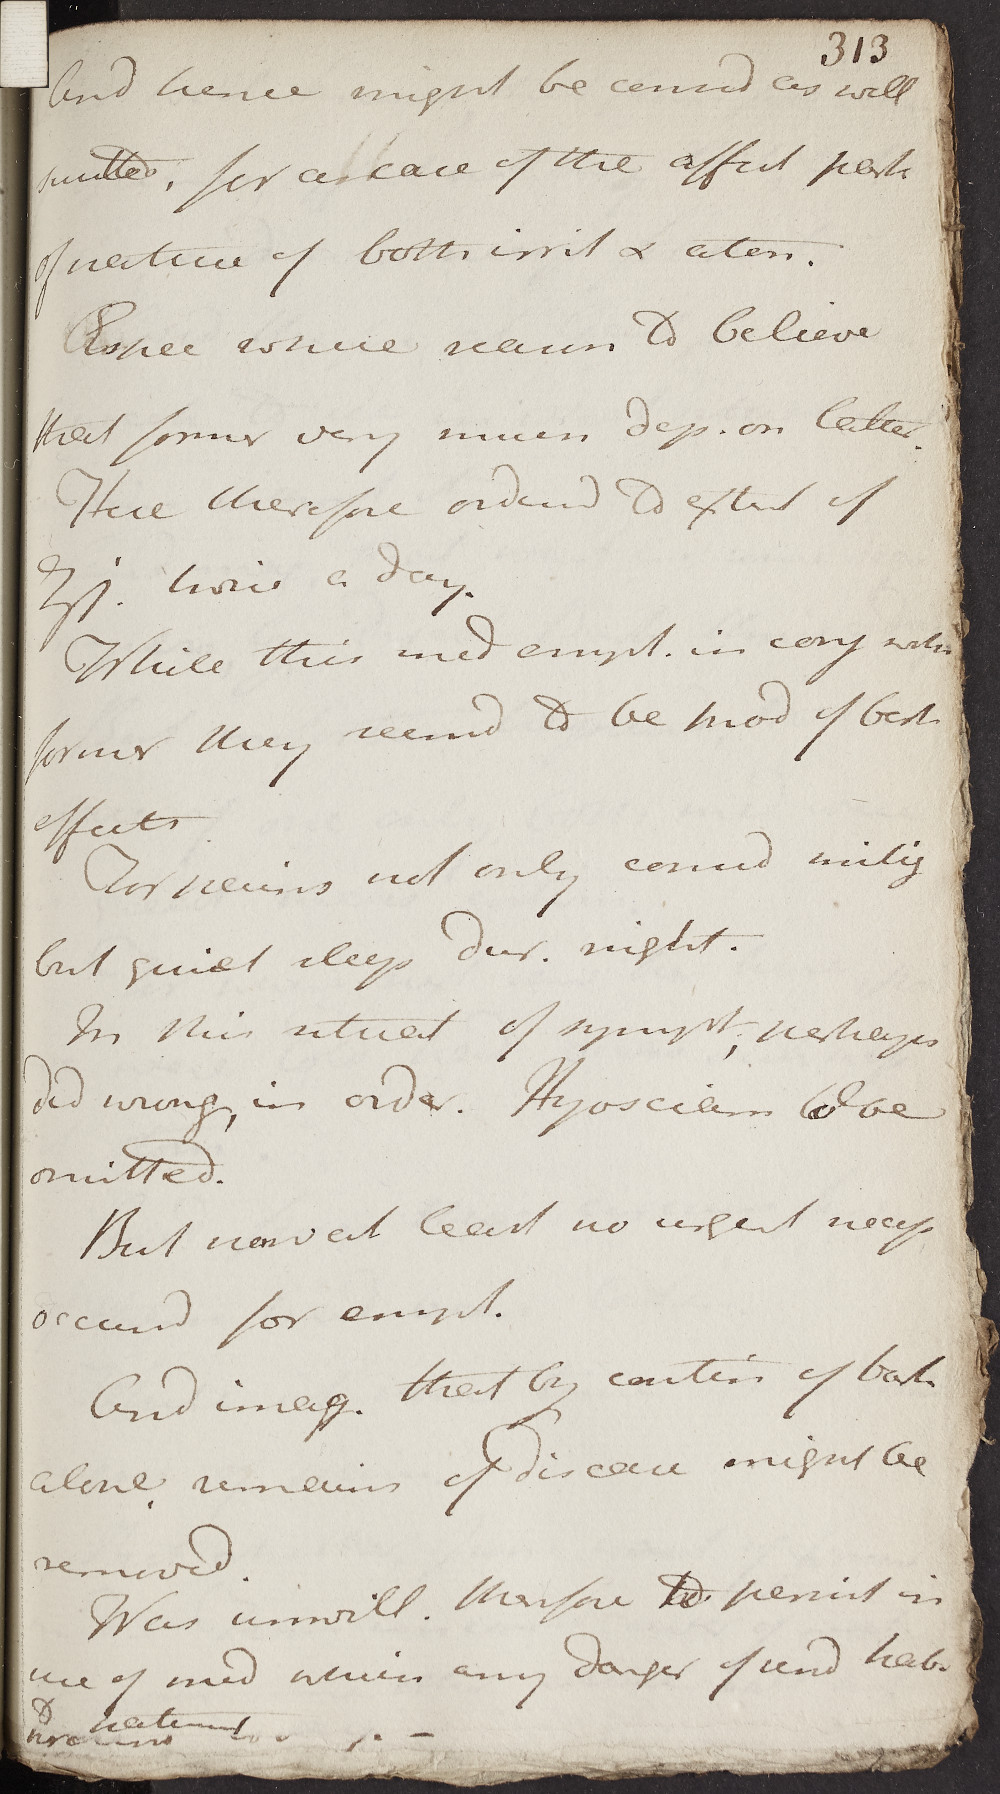 313
And hence might be consid as well
suited, for a case of the affect part
of nature of both irrit & aton.
Espec where reason to believe
that former very much dep. on latter.
Here therefore ordered to extent of
ʒj. twice a day.
While this med empl. in conj with
former they seemd to be prod of best
effects
For pains not only consid mitig
but quiet sleep dur. night.
In this situat of sympt, perhaps
did wrong, in order. Hyosciam to be
omitted.
But now at least no urgent necess
occurrd for empl.
And imag. that by contin of bark
alone, remains of disease might be
removed.
Was unwill. therefore to persist in
use of med when any danger of rend hab.
to patient